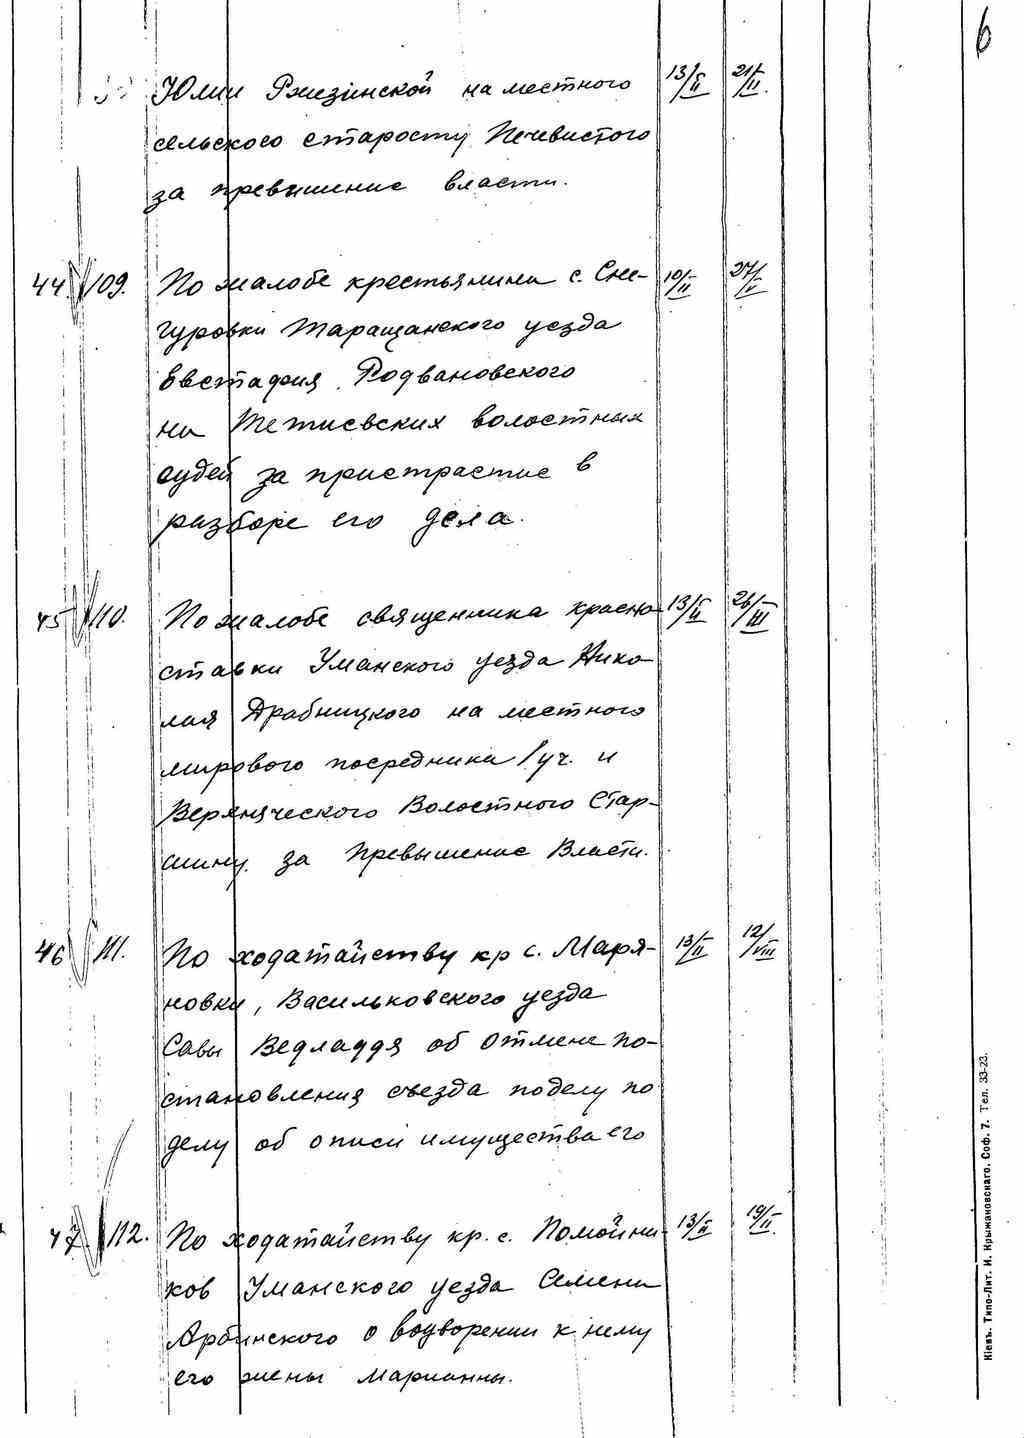 6
Юлии Ржезинской на местного 13/II 21/II.
сельского старосту Нечевистого
за превышение власти.
44. 109. По жалобе крестьянина с. Сне- 10/II 27/V
гуровки Таращанского уезда
Евстафия Родвановского
на Тетиевских волостных
судей за пристрастие в
разборе его дела.
45 110. По жалобе священника красно- 13/II 26/III
ставки Уманского уезда Нико-
лая Драбницкого на местного
мирового посредника 1 уч. и
Верхнячского Волостного Стар-
шину за превышение Власти.
46 111. По ходатайству кр с. Маря- 13/II 12/VIII
новки, Васильковского уезда
Савы Ведладдя об отмене по-
становления съезда по делу по
делу об описи имущества его
47. 112. По ходатайству кр. с. Помойни- 13/II 19/II.
ков Уманского уезда Семена
Арбинского о водворении к нему
его жены Марианны.
Кіевъ. Типо-Лит. И. Крыжановскаго. Соф. 7. Тел. 33-23.